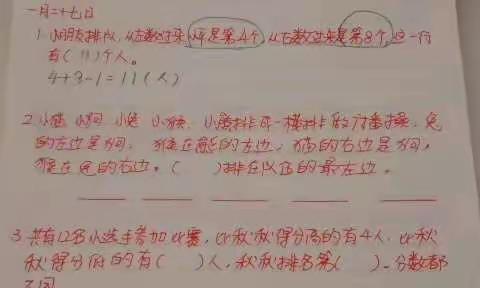 一月二十七日
1. 小朋友排队,从左数过来小平是第4个,从右数过来是第8个,这一行
有(11)个人。
4+8-1=11(人)
2. 小猫 小狗 小兔 小猴 小熊排成一横排做广播操,兔
的左边是狗,猴在熊的左边,猫的右边是狗,
猴在兔的右边。( )排在队伍的最左边。
3. 共有12名小选手参加比赛,比秋秋得分高的有4人,比秋
秋得分低的有( )人,秋秋排名第( )。分数都
不同